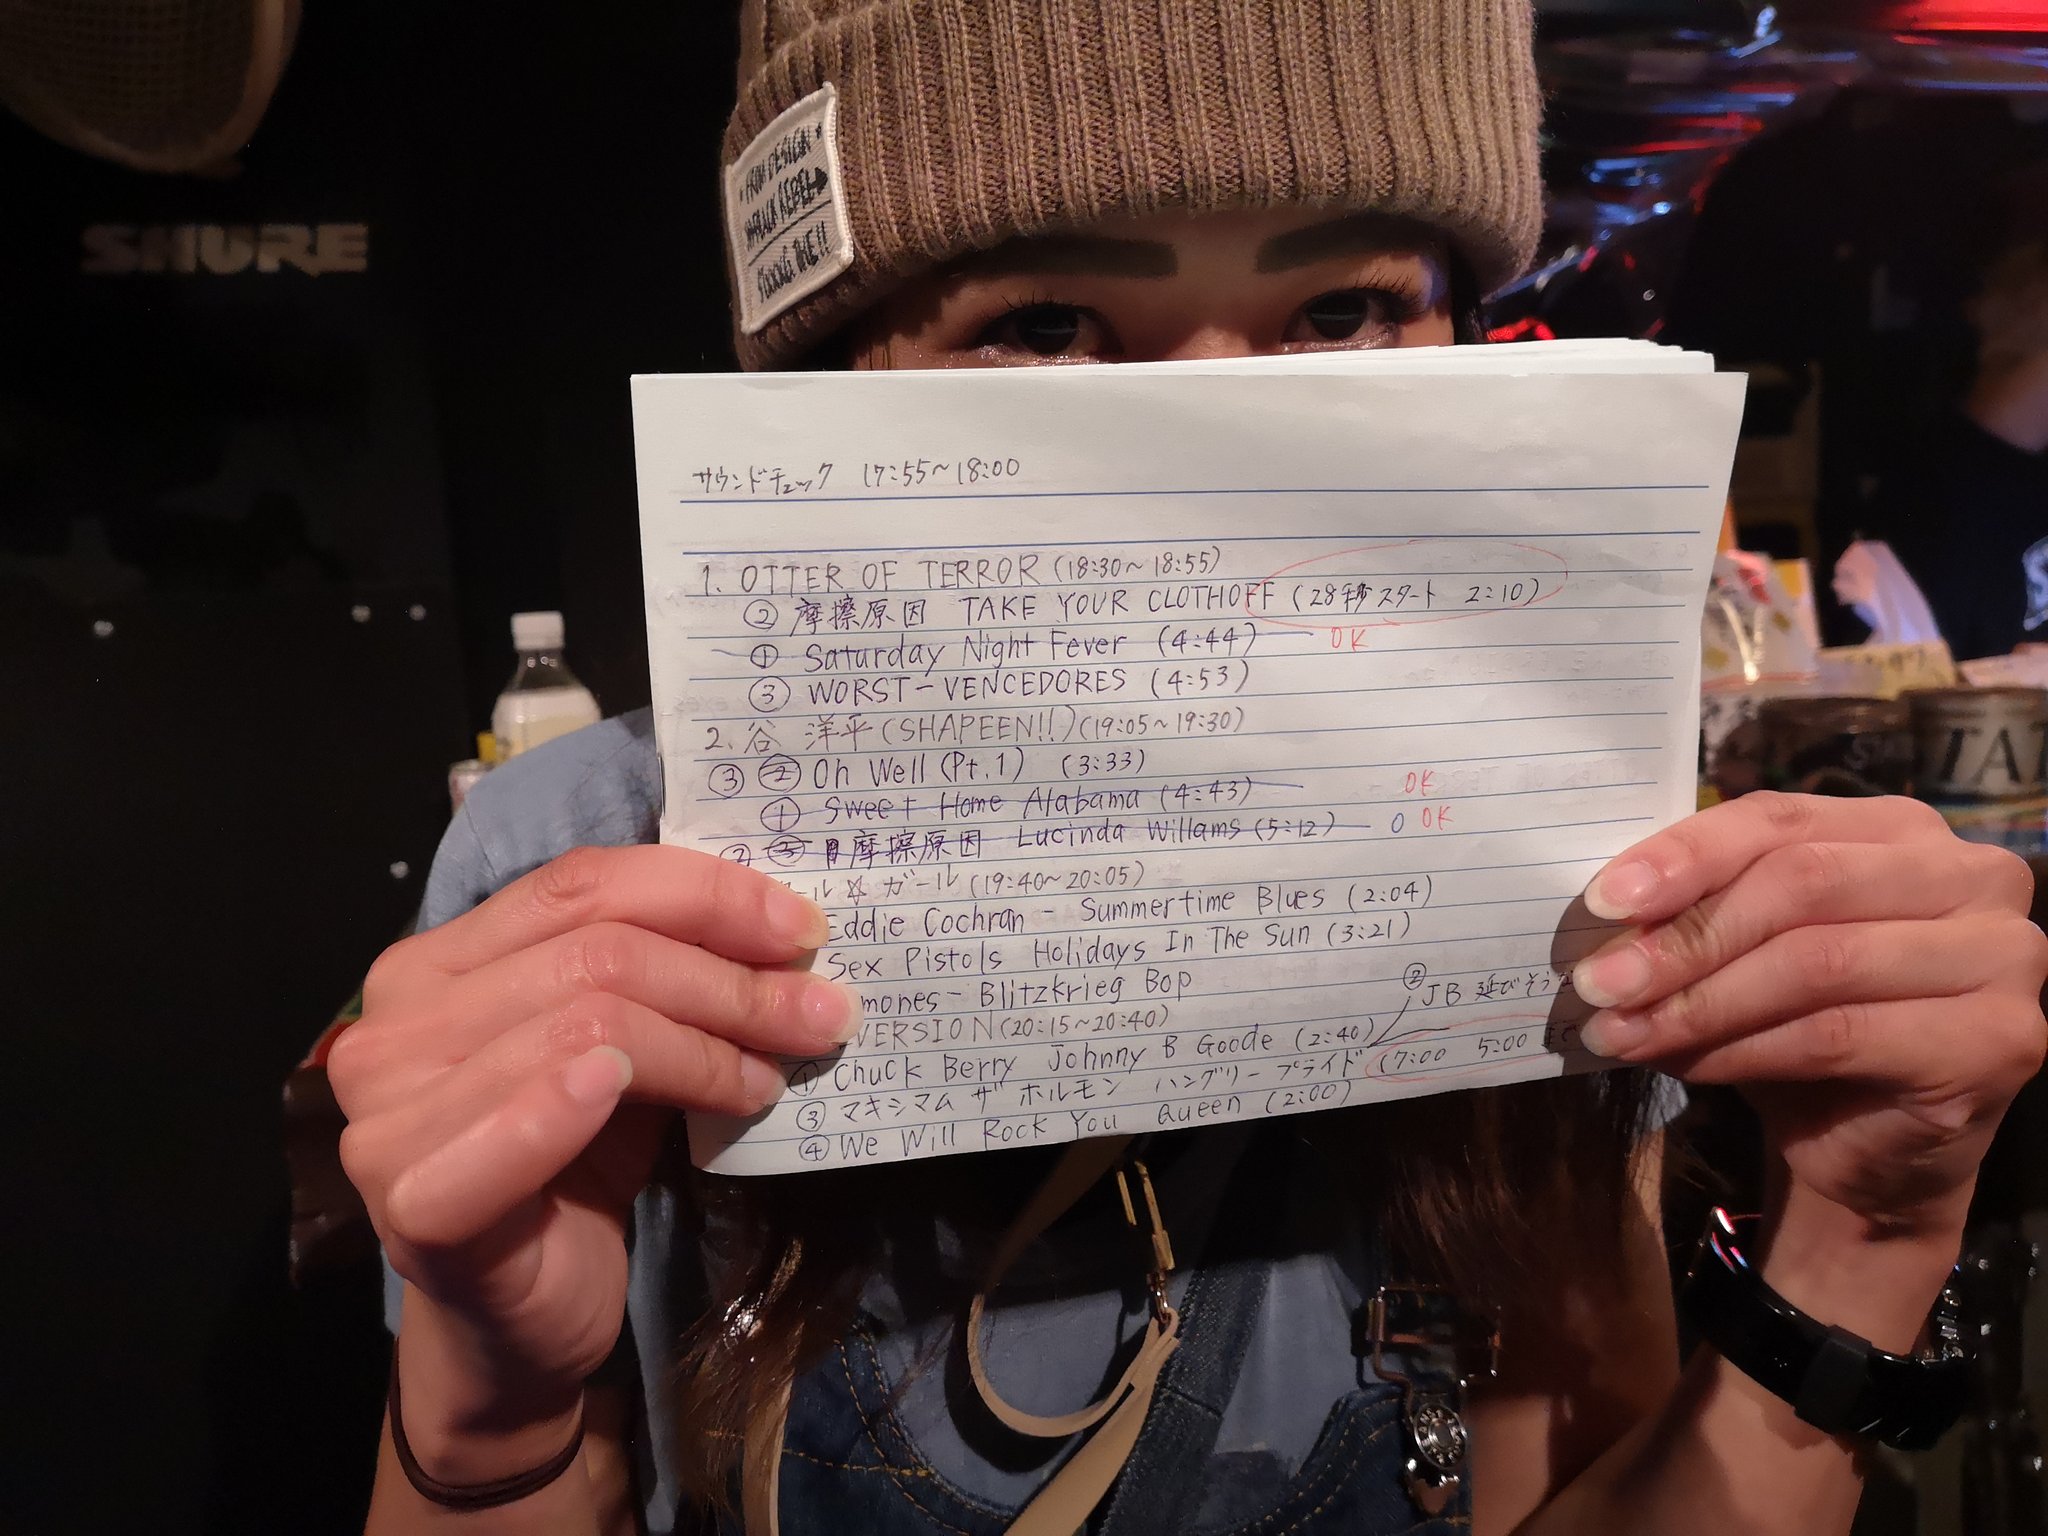 FROM DESIGN
BLACK REBEL
THE!!
SHURE
サウンドチェック 17:55~18:00
1. OTTER OF TERROR (18:30~18:55)
② 摩擦原因 TAKE YOUR CLOTHOFF (28秒スタート 2:10)
① Saturday Night Fever (4:44) OK
③ WORST-VENCEDORES (4:53)
2. 谷 洋平 (SHAPEEN!!) (19:05~19:30)
③ ② Oh Well (Pt.1) (3:33)
① Sweet Home Alabama (4:43) OK
② ③ 摩擦原因 Lucinda Willams (5:12) O OK
ール☆ガール (19:40~20:05)
Eddie Cochran - Summertime Blues (2:04)
Sex Pistols Holidays In The Sun (3:21)
mones- Blitzkrieg Bop
② JB 延びそうな
VERSION (20:15~20:40)
① Chuck Berry Johnny B Goode (2:40)
③ マキシマム ザ ホルモン ハングリープライド (7:00 5:00 まで
④ We Will Rock You Queen (2:00)